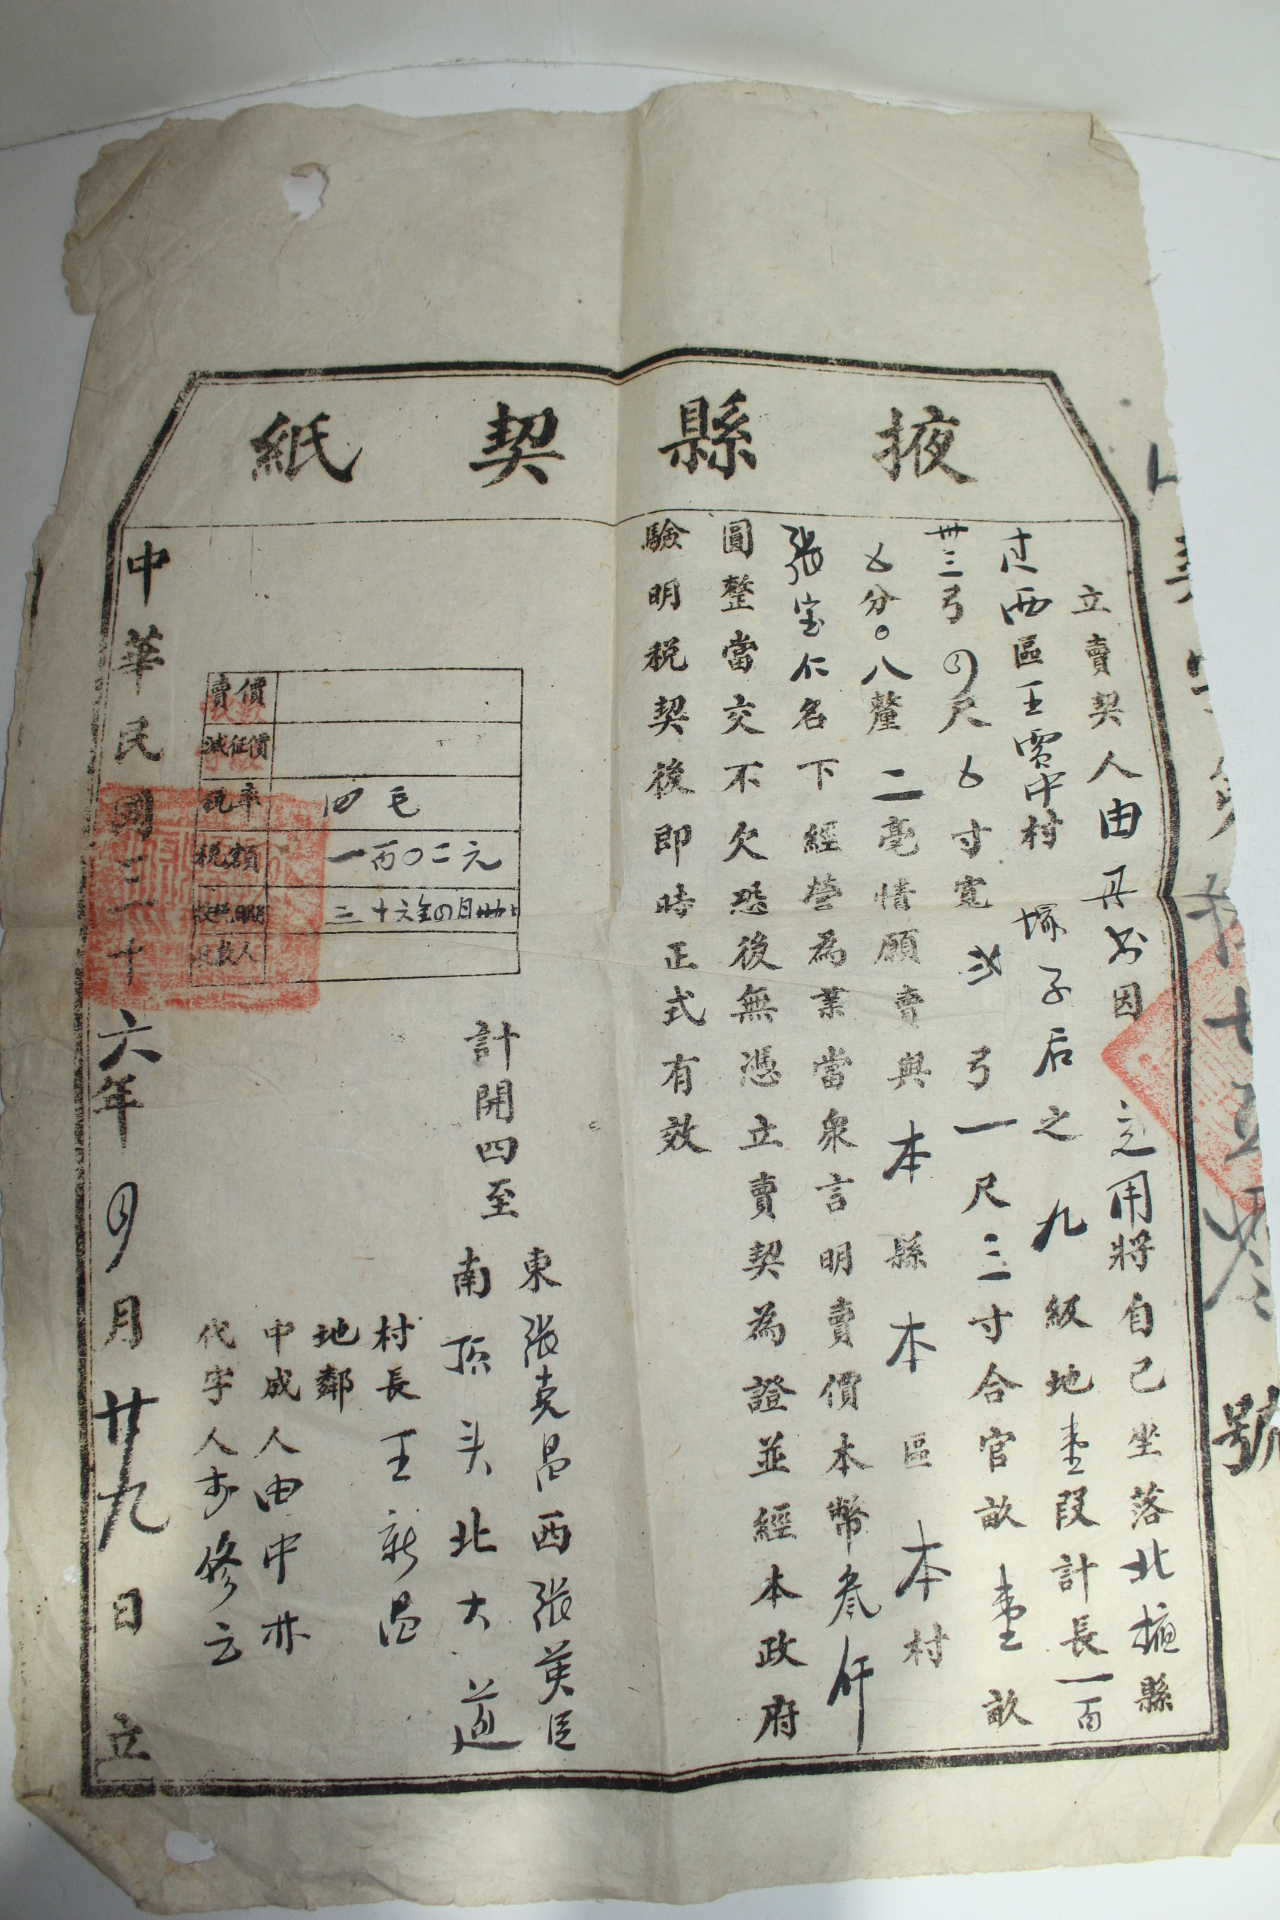 掖縣契紙
立賣契人由丹书因 之用將自己坐落北掖縣
过西區王賈中村 塚子后之 九級地壹段計長一百
卅三弓四尺七寸寬 弐弓一尺三寸合官畝壹畝
七分〇八釐二毫情願賣與本縣本區本村
張宝仁名下經營為業當衆言明賣價本幣叁仟
圓整當交不欠恐後無憑立賣契為證並經本政府
驗明税契後即時正式有效
計開四至
東張克昌西張英臣
南頂头北大道
村長王新昌
地鄰
中成人由中林
代字人 修云
賣價
減征價
税率 四毛
税額 一百〇二元
三十六年四月
中華民國三十六年四月廿九日立
號